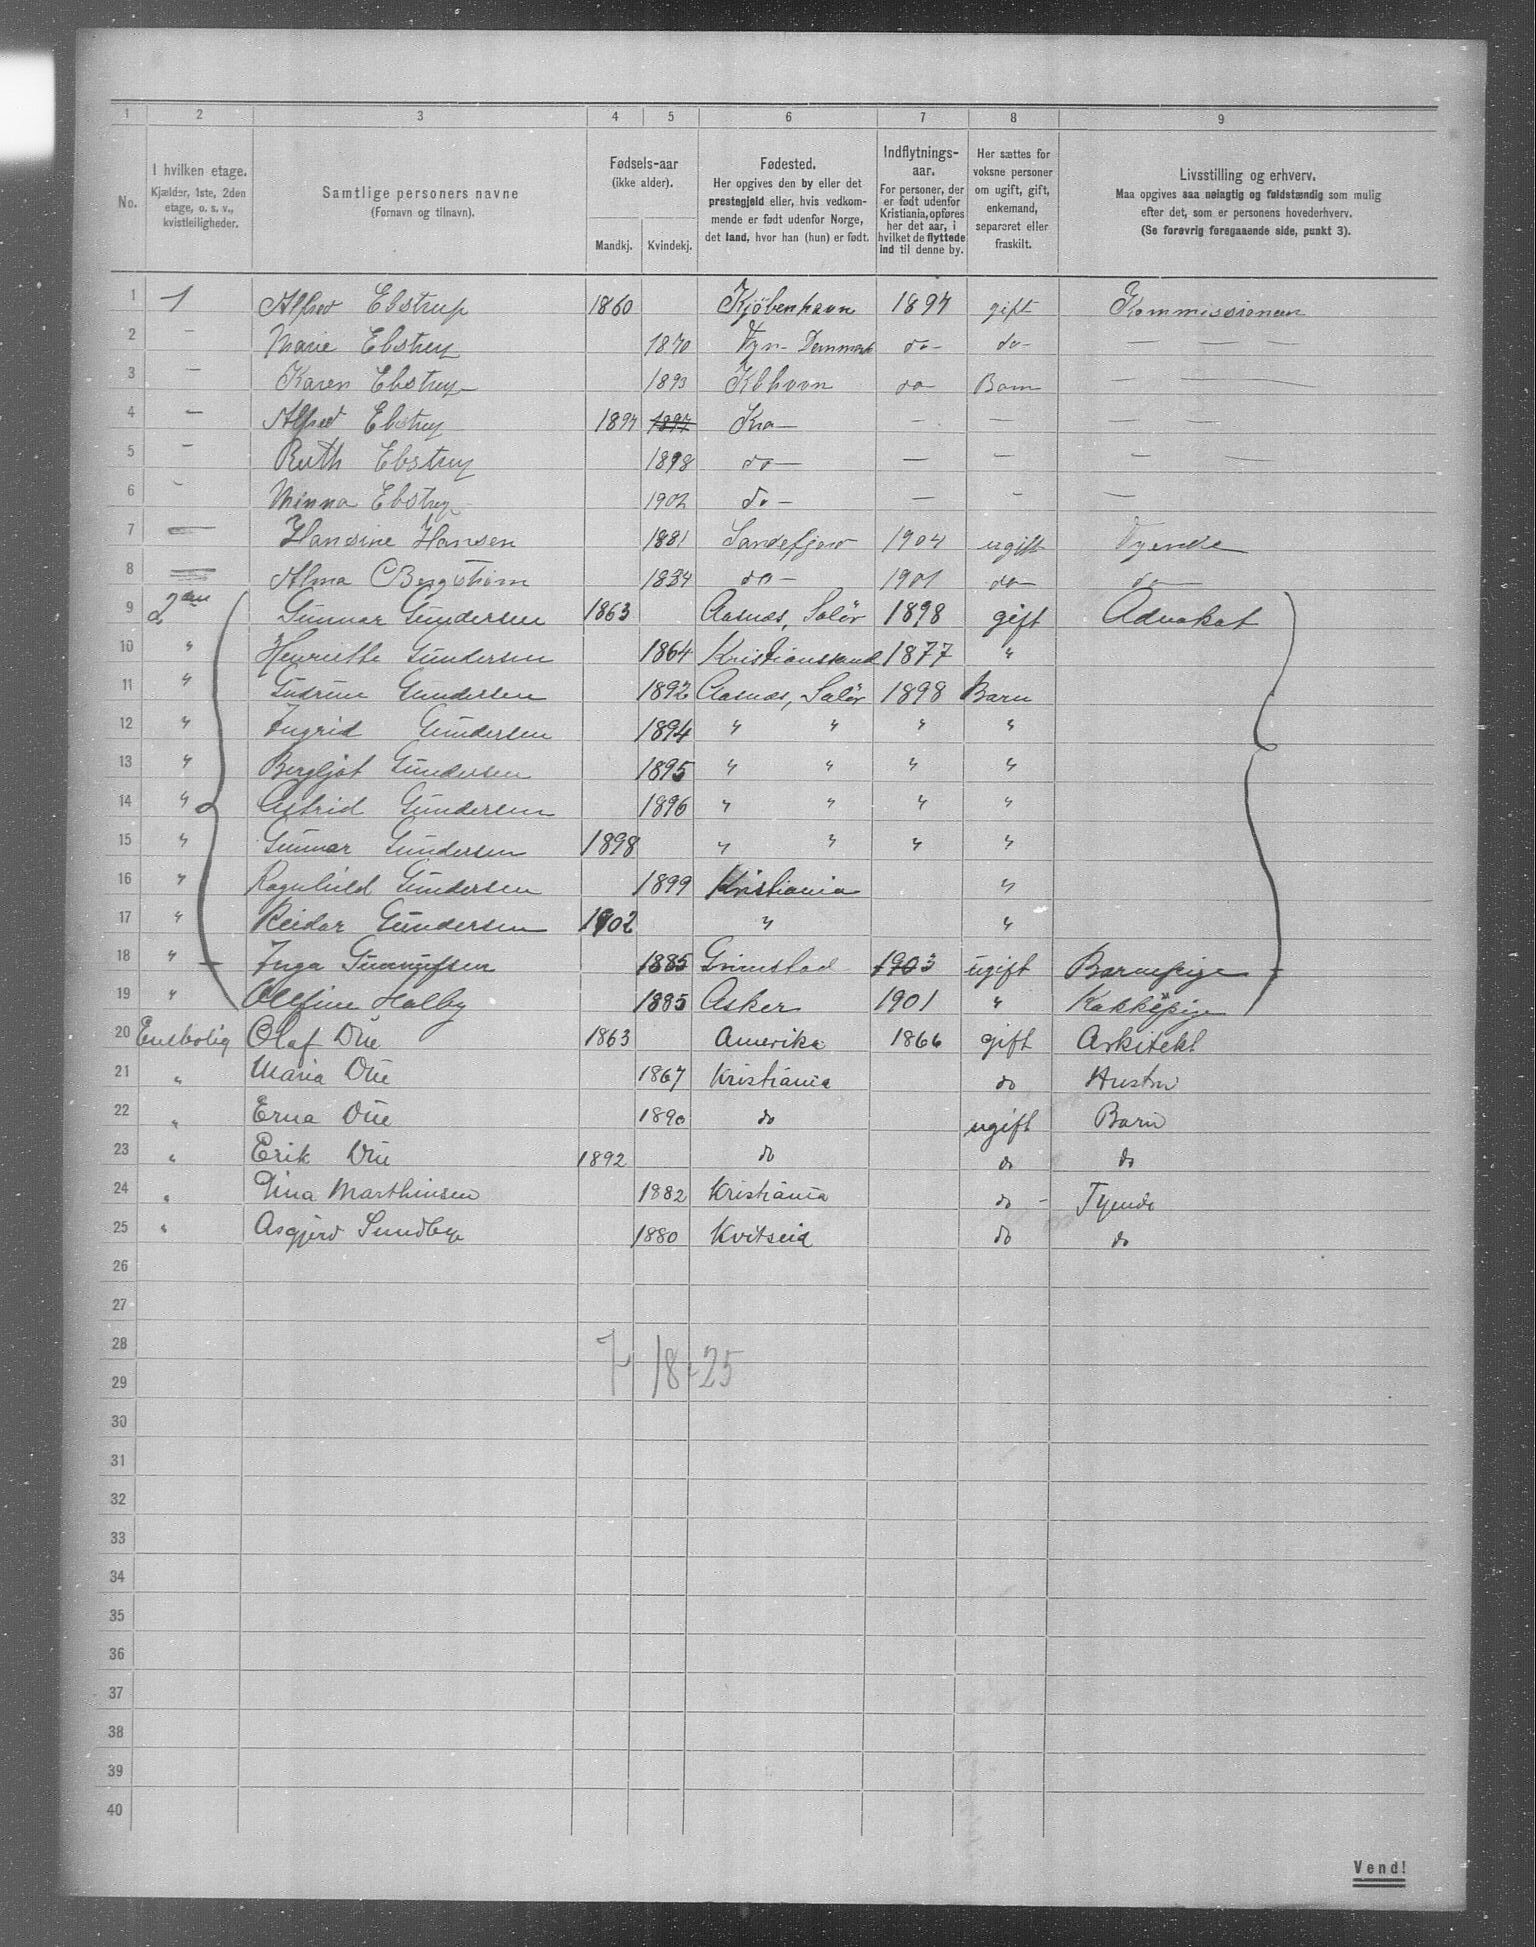 1 2 3 4 5 6 7 8 9
No.
I hvilken etage.
Kjælder, 1ste, 2den
etage, o. s. v.,
kvistleiligheder.
Samtlige personers navne
(Fornavn og tilnavn).
Fødsels-aar
(ikke alder).
Mandkj. Kvindekj.
Fødested.
Her opgives den by eller det
prestegjeld eller, hvis vedkom-
mende er født udenfor Norge,
det land, hvor han (hun) er født.
Indflytnings-
aar.
For personer, der
er født udenfor
Kristiania, opføres
her det aar, i
hvilket de flyttede
ind til denne by.
Her sættes for
voksne personer
om ugift, gift,
enkemand,
separeret eller
fraskilt.
Livsstilling og erhverv.
Maa opgives saa nøiagtig og fuldstændig som mulig
efter det, som er personens hovederhverv.
(Se forøvrig foregaaende side, punkt 3).
1 1 Alfred Ebstrup 1860 Kjöbenhavn 1897 gift Kommissionær
2 – Marie Ebstrup 1870 Fyn – Danmark do – do – – — —
3 – Karen Ebstrup 1893 Kbhavn do – Barn – —
4 – Alfred Ebstrup 1897 1897 Kra – – – – — —
5 – Ruth Ebstrup 1898 do – – – – —
6 – Minna Ebstrup 1902 do – – – –
7 — Hansine Hansen 1881 Sandefjord 1904 ugift Tjenere
8 — Alma Bergström 1884 do – 1901 do do
9 2den Gunnar Gundersen 1863 Aasnæs, Solör 1898 gift Advokat
10 " Henriette Gundersen 1864 Kristianssand 1877 "
11 " Gudrun Gundersen 1892 Aasnæs, Solör 1898 Barn
12 " Ingrid Gundersen 1894 " " " "
13 " Bergljot Gundersen 1895 " " " "
14 " Astrid Gundersen 1896 " " " "
15 " Gunnar Gundersen 1898 " " " "
16 " Ragnhild Gundersen 1899 Kristiania "
17 " Reidar Gundersen 1902 " "
18 " – Inga Gunnufsen 1885 Grimstad 1903 ugift Barnepige –
19 " Olefine Holby 1885 Asker 1901 " Kokkepige
20 Enebolig Olaf Due 1863 Amerika 1866 gift Arkitekt
21 " Maria Due 1867 Kristiania do Hustru
22 " Erna Due 1890 do ugift Barn
23 " Erik Due 1892 do do do
24 " Tina Marthinsen 1882 Kristiania do – Tjende
25 " Asgjerd Sundbye 1880 Kvitseid do do
26
27
28
7 18 25
29
30
31
32
33
34
35
36
37
38
39
40
Vend!